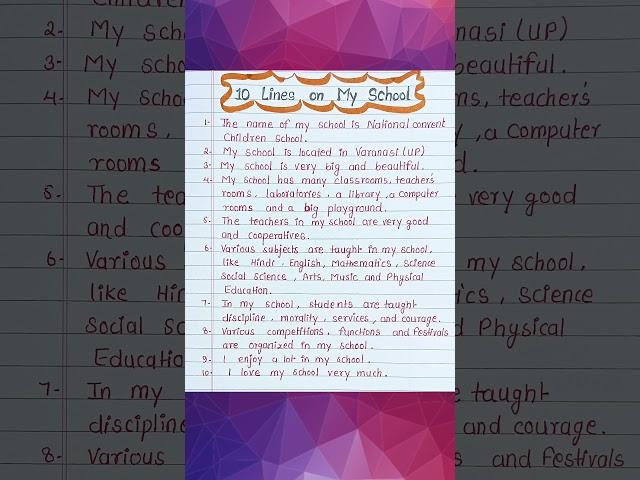 10 Lines on My School
1- The name of my school is National convent
Children School.
2- My school is located in Varanasi (UP)
3- My school is very big and beautiful.
4- My school has many classrooms, teacher's
rooms, laboratories, a library, a computer
rooms and a big playground.
5- The teachers in my school are very good
and cooperatives.
6- Various subjects are taught in my school,
like Hindi, English, Mathematics, Science
Social Science, Arts, Music and Physical
Education.
7- In my school, students are taught
discipline, morality, services, and courage.
8- Various competitions, functions and festivals
are organized in my school.
9- I enjoy a lot in my school.
10- I love my school very much.